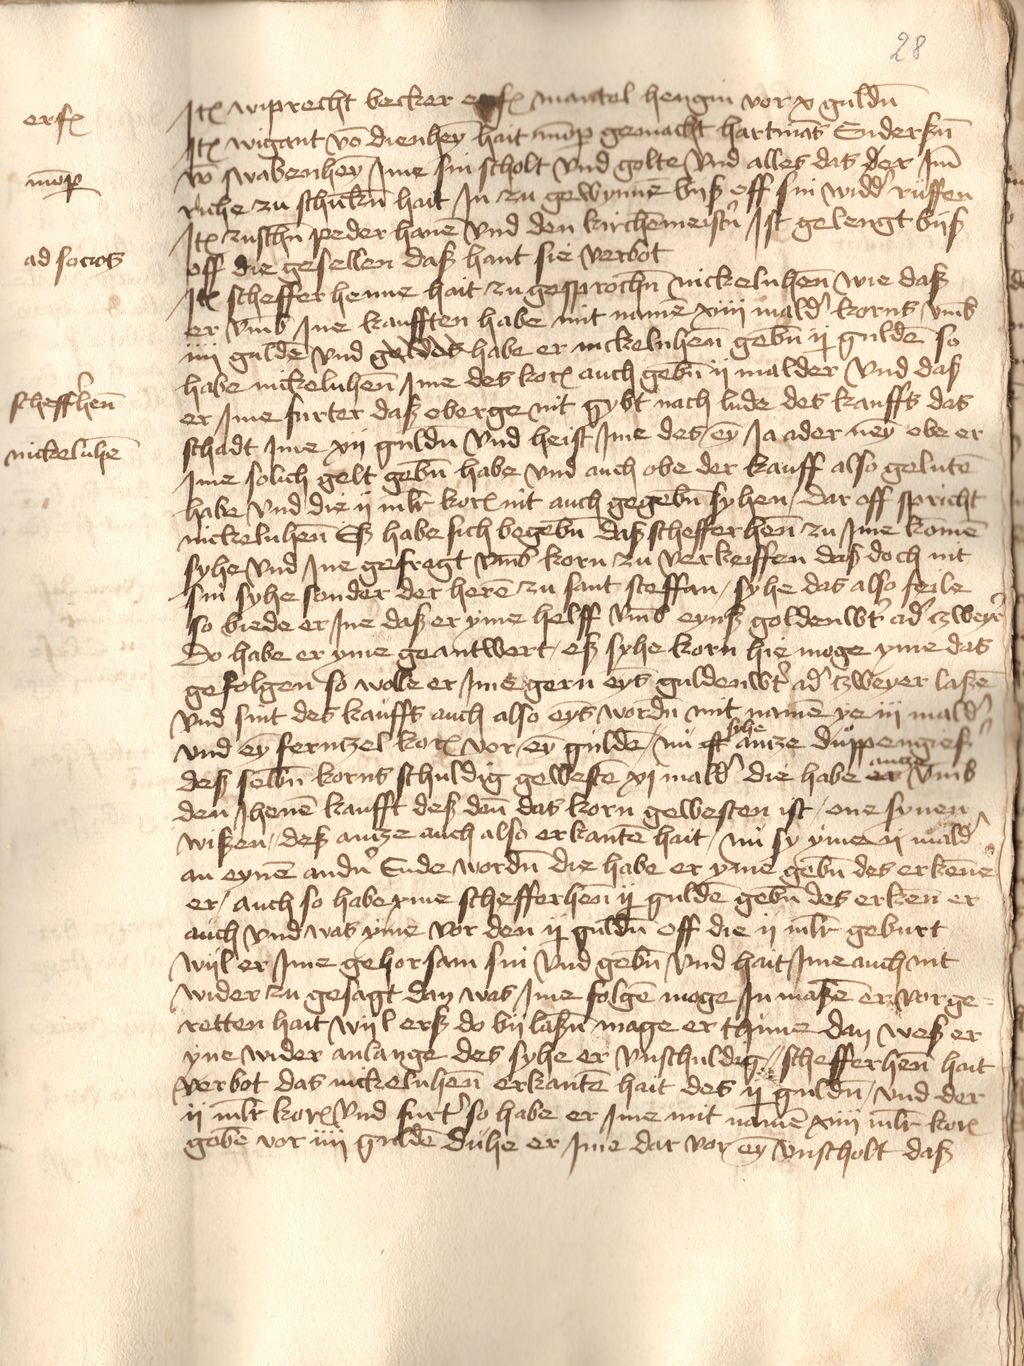 28
erf(x)
Jt(x) wiprecht becker erf(x) mantel hengin vor x guldn̄
Jt(x) wigant vō dienhey̅ hait mōp gemacht hartmās Enderßn̄
mōp
vō swabenhey̅ Jme sin scholt vnd golte vnd alles das der Jm̄
riche zu schickn̄ hait Jn zu gewynnē biß off sin widd' ruffen
Jt(x) zuschn̄ peder hanē vnd den kirchēmeist'n̄ Jst gelengt biß
ad socios
off die gesellen daß hant sie verbot
Jt(x) scheffer henne hait zu gesprochn̄ nickeluhen̄ wie daß
er vmb Jne kaufften habe mit namē xiiij mald' korns vmb
iiij guldē vnd habe er nickeluhen̄ gebn̄ ij guldē so
habe nickeluhen̄ Jme des kor(x) auch gebn̄ ij malder vnd daß
scheff'hen̄
er Jme furter daß oberge nit gybt nach lude des kauffs das
schadt Jme xij guldn̄ vnd heist Jme des ey̅ Ja ader ney̅ obe er
nickeluhē
Jme solich gelt gebn̄ habe vnd auch obe der kauff also gelutē
habe vnd die ij ml̄r kor(x) nit auch gegebn̄ syhen / dar off spricht
nickeluhen̄ Eß habe sich begebn̄ daß schefferhen̄ zu Jme komē
syhe vnd Jne gefragt vmb korn zu verkeiffen daß doch nit
sin syhe sonder der herē zu sant steffan / syhe das also feile
so biede er Jne daß er yme helff vmb eynß goldenwt' ad' tzweyr'
Do habe er yme geantwert / eß syhe korn hie moge yme das
gefolgen so wolle er Jme gern eys guldenwt' ad' tzweyer laßē
vnd sint des kauffs auch also eys wordn̄ mit namē ye iij mald'
vnd ey̅ ferntzel kor(x) vor ey̅ guldē / nū syhe antze duppengieß'
deß selbn̄ korns schuldig gewestē xj mald' die habe antze vmb
den Jhenē kaufft deß dan̄ das korn gewesten ist / one synen
wißen / deß antze auch also erkante hait / nū sy yme ij mald'
an eynē andn̄' Ende wordn̄ die habe er ymē gebn̄ des erkēne
er / auch so habe yme schefferhen̄ ij guldē gebn̄ des erken̄ er
auch vnd was yme vor den ij guldn̄ off die ij ml̄r geburt
wijl er Jme gehorsam sin vnd gebn̄ vnd hait Jme auch nit
wider zu gesagt dan was Jme folgē moge Jn maßē er vorge=
retten hait wijl erß do bij laßn̄ mage er thune dan weß er
yne wider anlange des syhe er vnschuldig / schefferhen̄ hait
verbot das nickeluhen̄ erkantē hait des ij guldn̄ / vnd der
ij ml̄r kor(x) vnd furt' so habe er Jme mit namē xiiij ml̄r kor(x)
gebē vor iiij guldē duhe er Jme dar vor ey̅ vnscholt daß